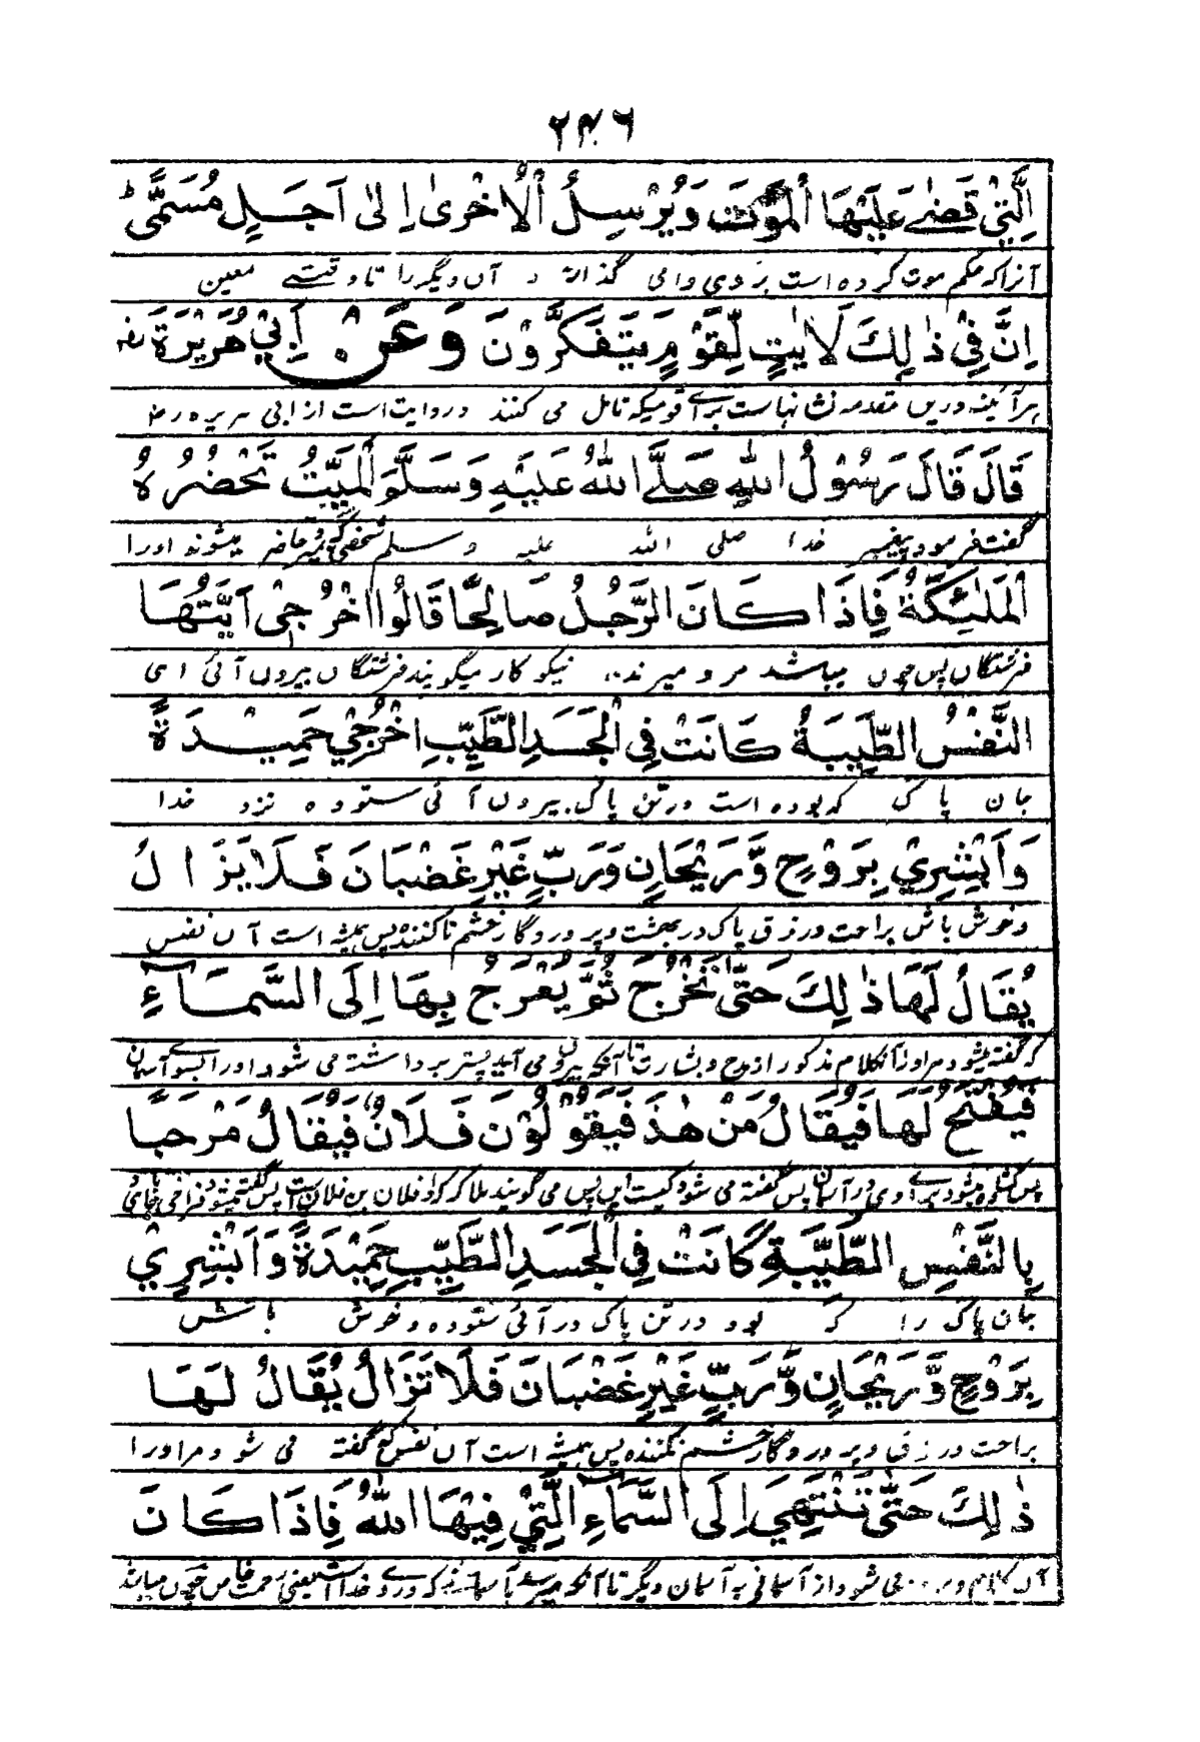 ۲۴۶
الَّتِيْ قَضٰے عَلَيْهَا الْمَوْتَ وَيُرْسِلُ الْاُخْرٰى اِلٰى اَجَلٍ مُسَمًّى ط
آنرا که حکم موت کرده است بر وی وامی گذارد آن دیگر را تا وقتے معین
اِنَّ فِيْ ذٰلِكَ لَاٰيٰتٍ لِّقَوْمٍ يَّتَفَكَّرُوْنَ وَعَنْ اَبِيْ هُرَيْرَةَ رضہ
ہر آئینه درین مقدمه نشانهاست برائے قومیکه تامل می کنند و روایت است از ابی ہریره رض
قَالَ قَالَ رَسُوْلُ اللّٰهِ صَلَّے اللّٰهُ عَلَيْهِ وَسَلَّمَ الْمَيِّتُ تَحْضُرُهُ
گفت فرمود پیغمبر خدا صلی الله علیه وسلم شخصی که میرد حاضر میشوند اورا
الْمَلٰئِكَةُ فَاِذَا كَانَ الرَّجُلُ صَالِحًا قَالُوا اخْرُجِىْ اَيَّتُهَا
فرشتگان پس چون میباشد مرد میرنده نیکو کار میگویند فرشتگان بیرون آئ ای
النَّفْسُ الطَّيِّبَةُ كَانَتْ فِي الْجَسَدِ الطَّيِّبِ اخْرُجِيْ حَمِيْدَةً
جان پاک که بوده است در تن پاک بیرون آئی ستوده نزد خدا
وَاَبْشِرِيْ بِرَوْحٍ وَّرَيْحَانٍ وَرَبٍّ غَيْرِ غَضْبَانَ فَلَا يَزَالُ
وخوش باش براحت ورزق پاک در بهشت وپروردگار خشم ناکننده پس همیشه است آن نفس
يُقَالُ لَهَا ذٰلِكَ حَتّٰى تَخْرُجَ ثُمَّ يُعْرَجُ بِهَا اِلَى السَّمَآءِ
که گفته میشود مر اورا آن کلام مذکور از روح وبشارت تا آنکه بیرون می آید پستر برداشته می شود اورا بسوے آسمان
فَيُفْتَحُ لَهَا فَيُقَالُ مَنْ هٰذَا فَيَقُوْلُوْنَ فَلَانٌ فَيُقَالُ مَرْحَبًا
پس کشاده میشود برائے وی در آسمان پس گفته می شود کیست این پس می گویند ملائکه که او فلان بن فلان است پس گفته میشود فراخی جای
بِالنَّفْسِ الطَّيِّبَةِ كَانَتْ فِي الْجَسَدِ الطَّيِّبِ حَمِيْدَةً وَاَبْشِرِيْ
جان پاک را که بود در تن پاک در آئی ستوده وخوش باش
بِرَوْحٍ وَّرَيْحَانٍ وَّرَبٍّ غَيْرِ غَضْبَانَ فَلَا تَزَالُ يُقَالُ لَهَا
براحت ورزق وپروردگار خشم نکننده پس همیشه است آن نفس که گفته می شود مر اورا
ذٰلِكَ حَتّٰى تَنْتَهِيَ اِلَى السَّمَآءِ الَّتِيْ فِيْهَا اللّٰهُ فَاِذَا كَانَ
آن کلام می شود از آسمانی به آسمان دیگر تا آنکه میرسد خدا است یعنی رحمت خاص چون میباشد